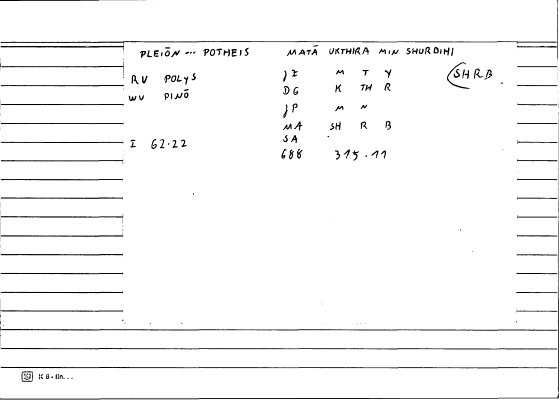 PLEIŌN --- POTHEIS MATĀ UKTHIRA MIN SHURBIHI
RV POLYS JZ M T Y (SHRB
WV PINŌ DG K TH R
JP M N
MA SH R B
I 62.22 SA
688 315.11